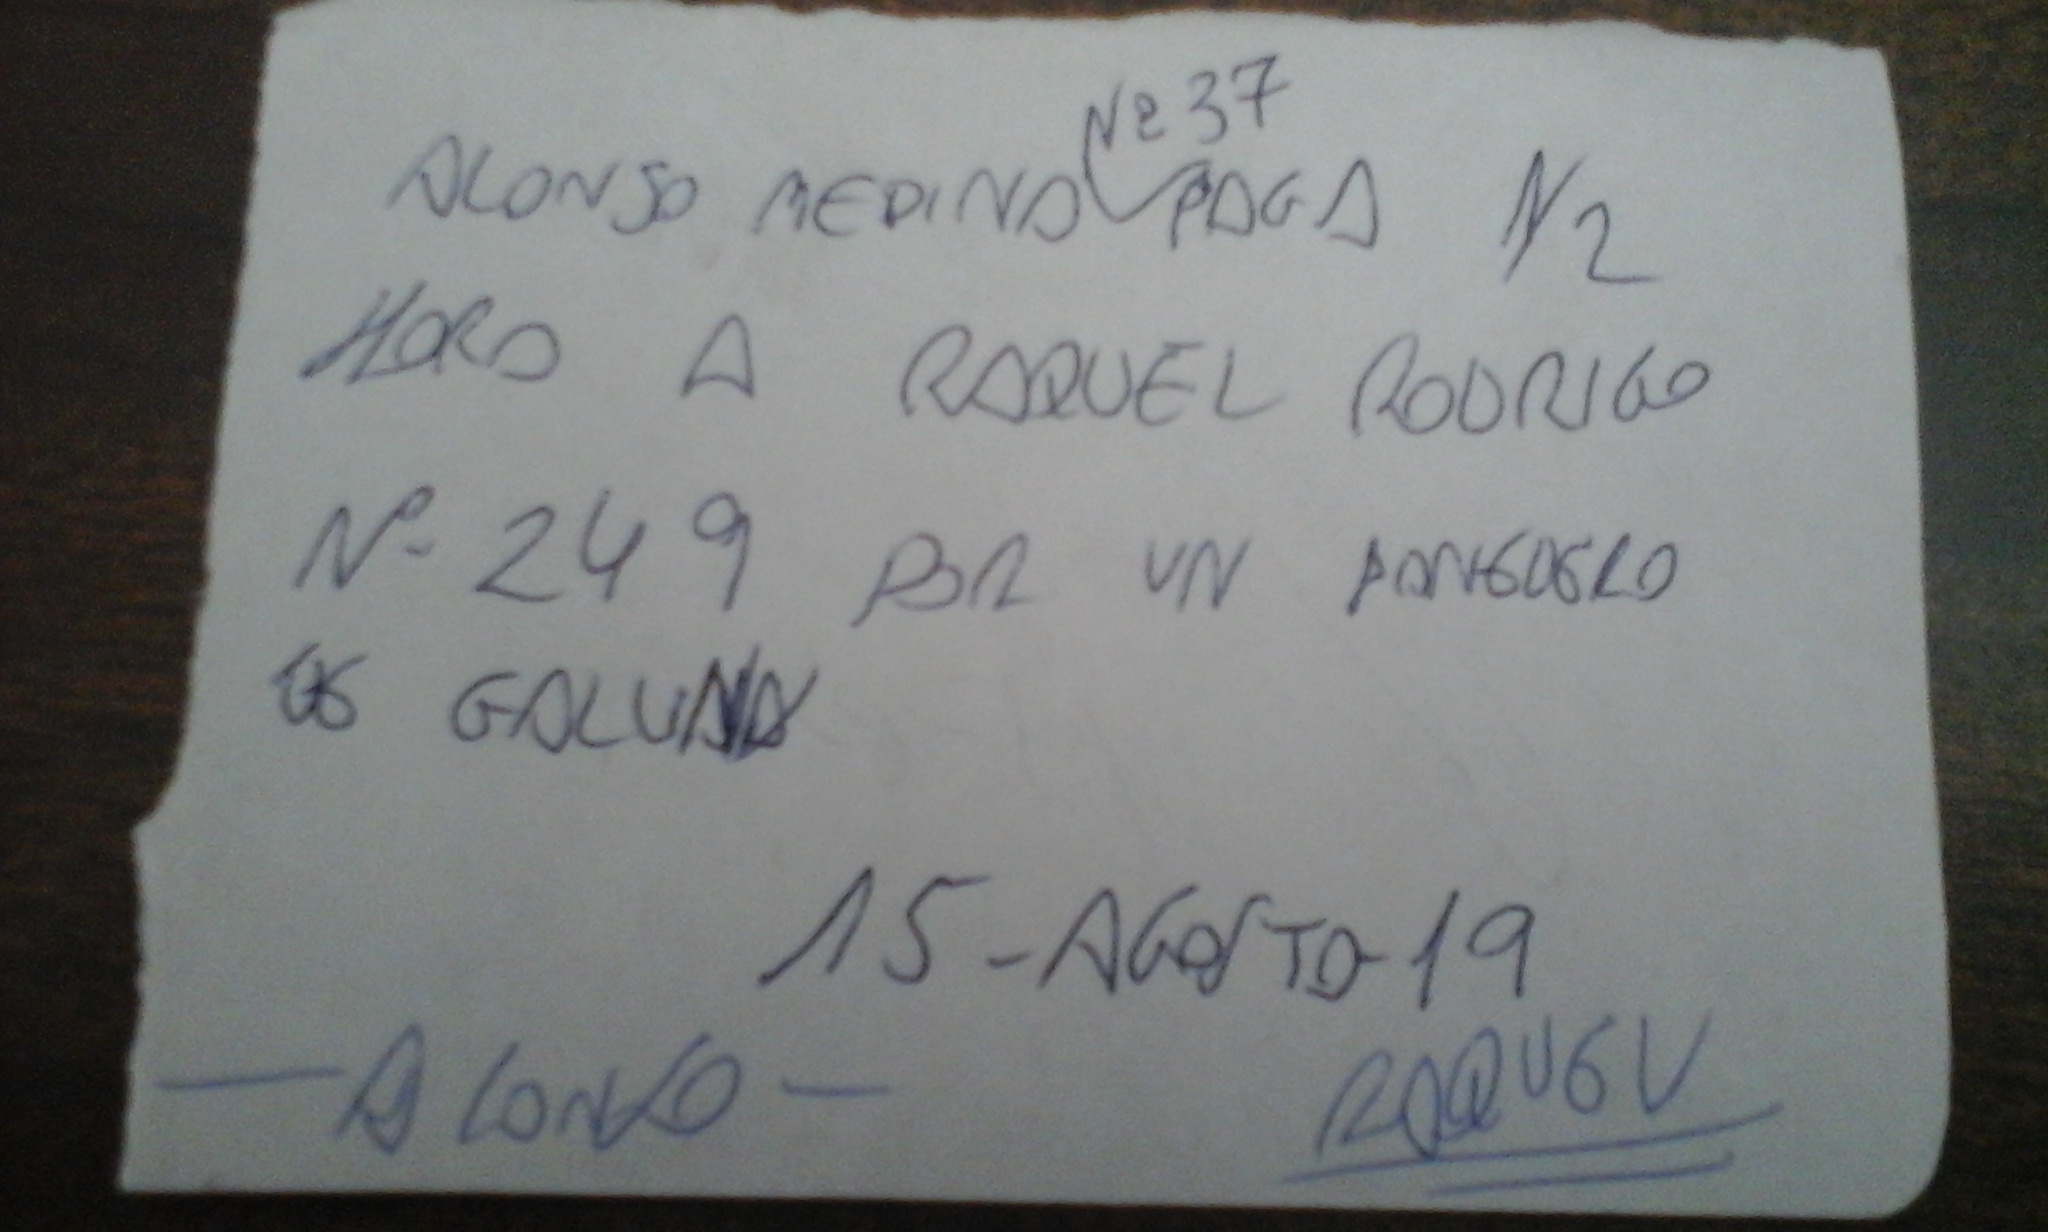 Nº 37
ALONSO MEDINA PAGA 1/2
HORA A RAQUEL RODRIGO
Nº 249 POR UN PONEDERO
DE GALLINA
15-AGOSTO-19
—ALONSO— RAQUEL